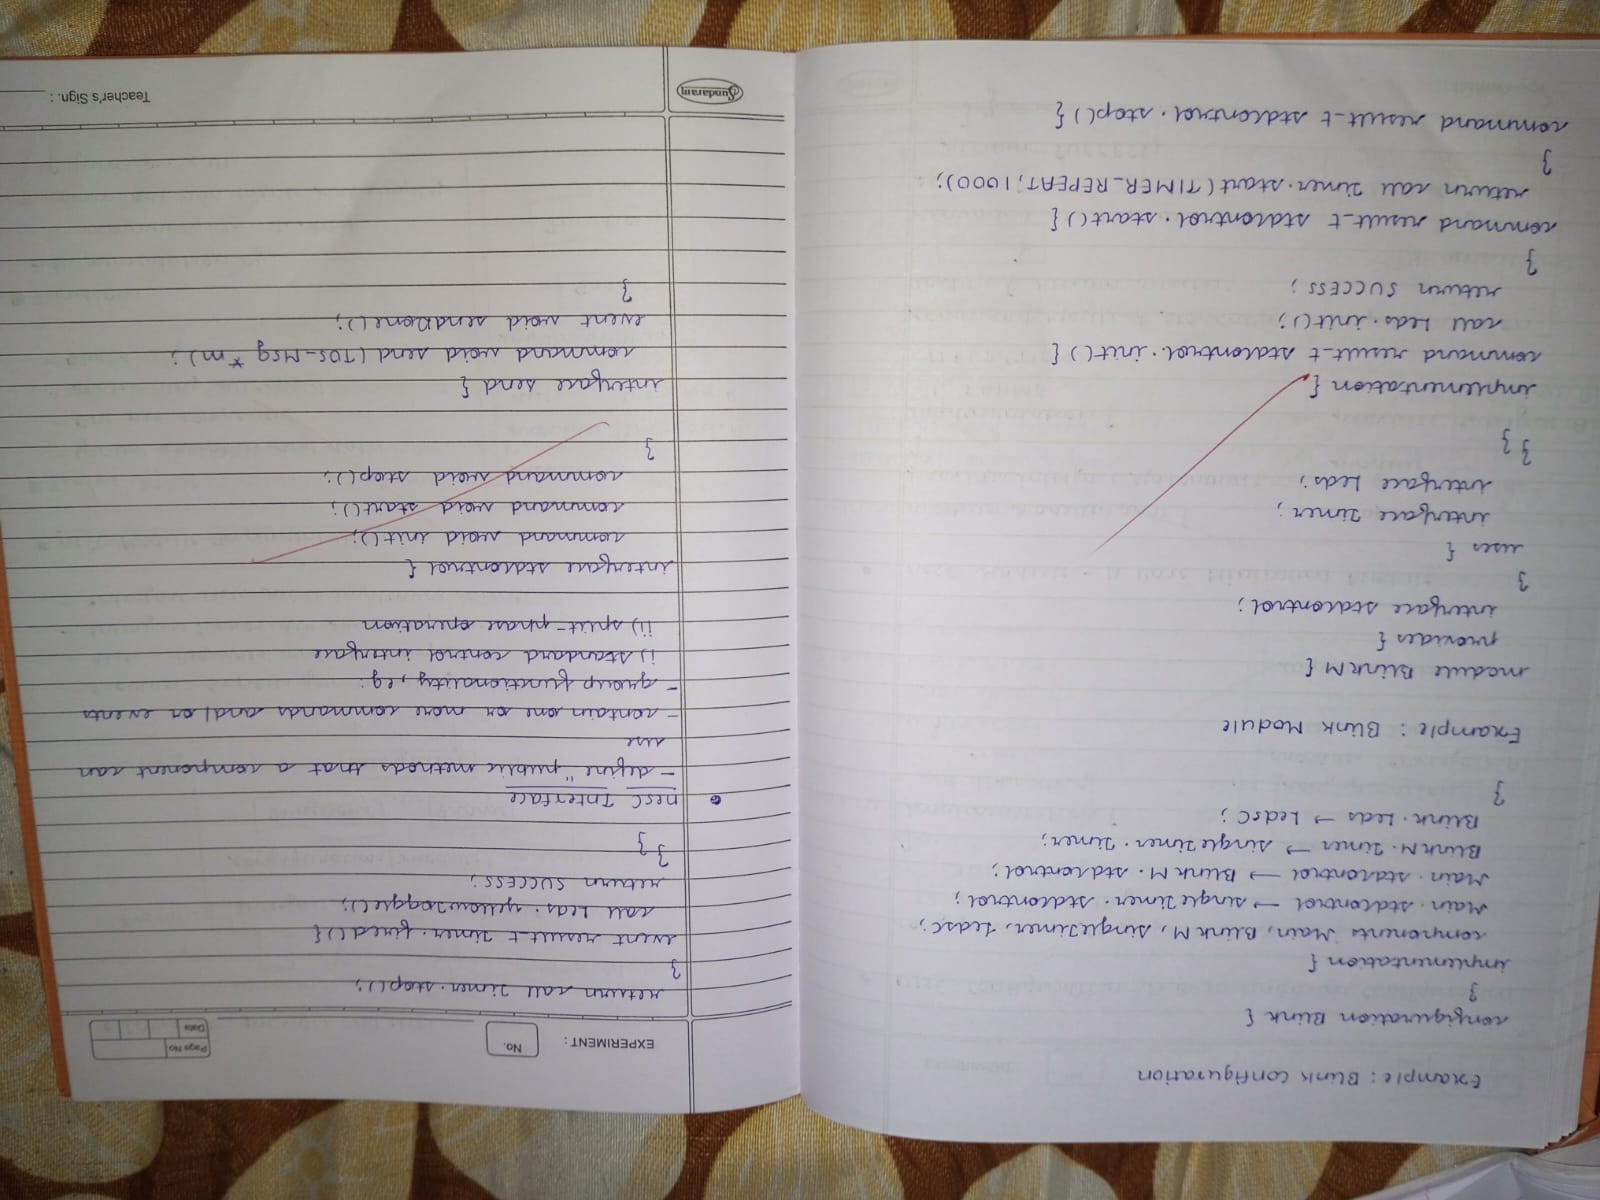 Example : Blink configuration
configuration Blink {
}
implementation {
components Main, BlinkM, SingleTimer, LedsC;
Main.stdcontrol → singleTimer.stdcontrol;
Main.stdcontrol → BlinkM.stdcontrol;
BlinkM.Timer → SingleTimer.Timer;
Blink.Leds → LedsC;
}
Example : Blink Module
module BlinkM {
provides {
interface stdcontrol;
}
uses {
interface Timer;
interface Leds;
} }
implementation {
command result_t stdcontrol.init() {
call Leds.init();
return SUCCESS;
}
command result_t stdcontrol.start() {
return call Timer.start(TIMER_REPEAT, 1000);
}
command result_t stdcontrol.stop() {
EXPERIMENT :
No.
Page No
Date
return call Timer.stop();
}
event result_t Timer.fired() {
call Leds.yellowToggle();
return SUCCESS;
} }
• nesC Interface
- define "public" methods that a component can
use
- contain one or more commands and/or events
- group functionality, eg:
i) standard control interface
ii) split-phase operation
interface stdcontrol {
command void init();
command void start();
command void stop();
}
interface send {
command void send(TOS-Msg *m);
event void sendDone();
}
Sundaram
Teacher's Sign. :